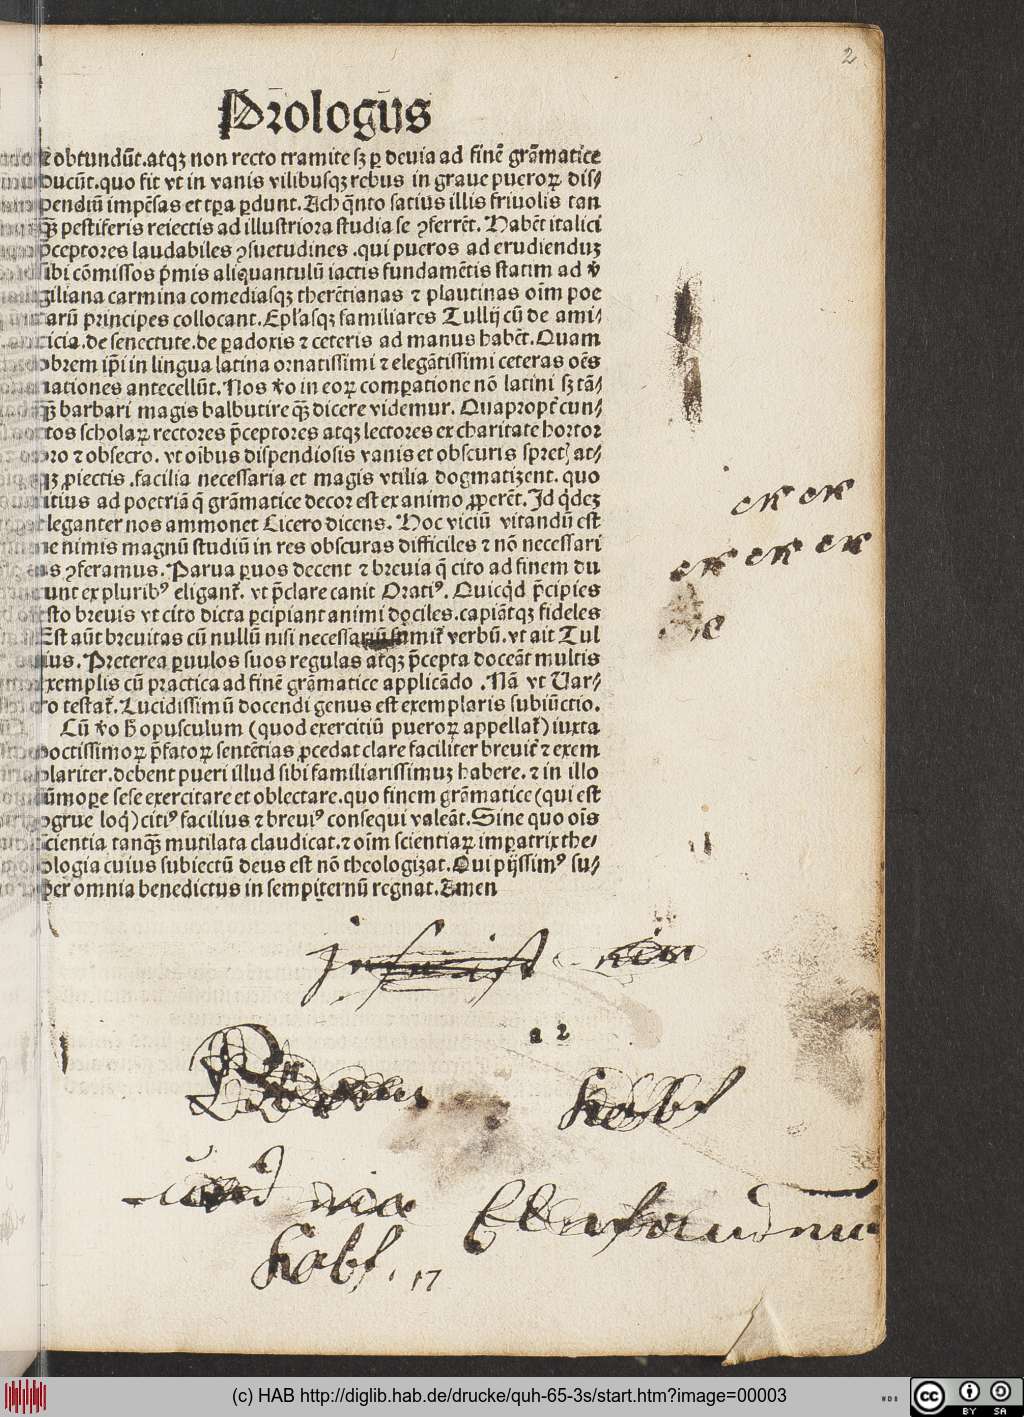 2
Prologus
⁊ obtundūt.atqꝫ non recto tramite sꝫ ꝑ deuia ad finē grāmatice
ducūt.quo fit vt in vanis vilibusqꝫ rebus in graue pueroꝝ dis/
pendiū impēsas et tꝑa ꝑdunt. Ach q̄nto satius illis friuolis tan
qꝫ̄ pestiferis reiectis ad illustriora studia se ꝯferrēt. Habēt italici
p̄ceptores laudabiles ꝯsuetudines .qui pueros ad erudienduꝫ
sibi cōmissos p̄mis aliquantulū iactis fundamētis statim ad v̓
giliana carmina comediasqꝫ therētianas ⁊ plautinas oīm poe
tarū principes collocant. Epl̄asqꝫ familiares Tullij cū de ami/
cicia.de senectute.de ꝑadoxis ⁊ ceteris ad manus habēt. Quam
obrem ip̄i in lingua latina ornatissimi ⁊ elegātissimi ceteras oēs
nationes antecellūt. Nos v̓o in eoꝝ compatione nō latini sꝫ tā/
qꝫ̄ barbari magis balbutire qꝫ̄ dicere videmur. Quapropt̓ cun/
ctos scholaꝝ rectores p̄ceptores atqꝫ lectores ex charitate hortor
oro ⁊ obsecro. vt oībus dispendiosis vanis et obscuris spret⁊ at/
qꝫ ꝓiectis .facilia necessaria et magis vtilia dogmatizent. quo
citius ad poetriā q̄ grāmatice decor est ex animo ꝓꝑerēt. Id qd̓eꝫ
eleganter nos ammonet Cicero dicens. Hoc viciū vitandū est
ne nimis magnū studiū in res obscuras difficiles ⁊ nō necessari
as ꝯferamus. Parua ꝑuos decent ⁊ breuia q̄ cito ad finem du
cunt ex pluribꝰ eligant̓. vt p̄clare canit Oratiꝰ. Quicqd̓ p̄cipies
esto breuis vt cito dicta ꝑcipiant animi dociles.capiātqꝫ fideles
Est aūt breuitas cū nullū nisi necessariū sumit̓ verbū. vt ait Tul
lius. Preterea ꝑuulos suos regulas atqꝫ p̄cepta doceāt multis
exemplis cū practica ad finē grāmatice applicādo .Nā vt Uar/
ro testat̓. Lucidissimū docendi genus est exemplaris subiūctio.
Cū v̓o h̄ opusculum (quod exercitiū pueroꝝ appellat̓) iuxta
doctissimoꝝ p̄fatoꝝ sentētias ꝓcedat clare faciliter breuit̓ ⁊ exem
plariter.debent pueri illud sibi familiarissimuꝫ habere. ⁊ in illo
sūmopere sese exercitare et oblectare.quo finem grāmatice (qui est
cōgrue loq̓) citiꝰ facilius ⁊ breuiꝰ consequi valeāt. Sine quo oīs
scientia tanqꝫ̄ mutilata claudicat. ⁊ oīm scientiaꝝ imꝑatrix the/
ologia cuius subiectū deus est nō theologizat. Qui pijssimꝰ su/
per omnia benedictus in sempiternū regnat. Amen
a 2
und
Habs. 17
(c) HAB http://diglib.hab.de/drucke/quh-65-3s/start.htm?image=00003
WDB
cc
BY SA